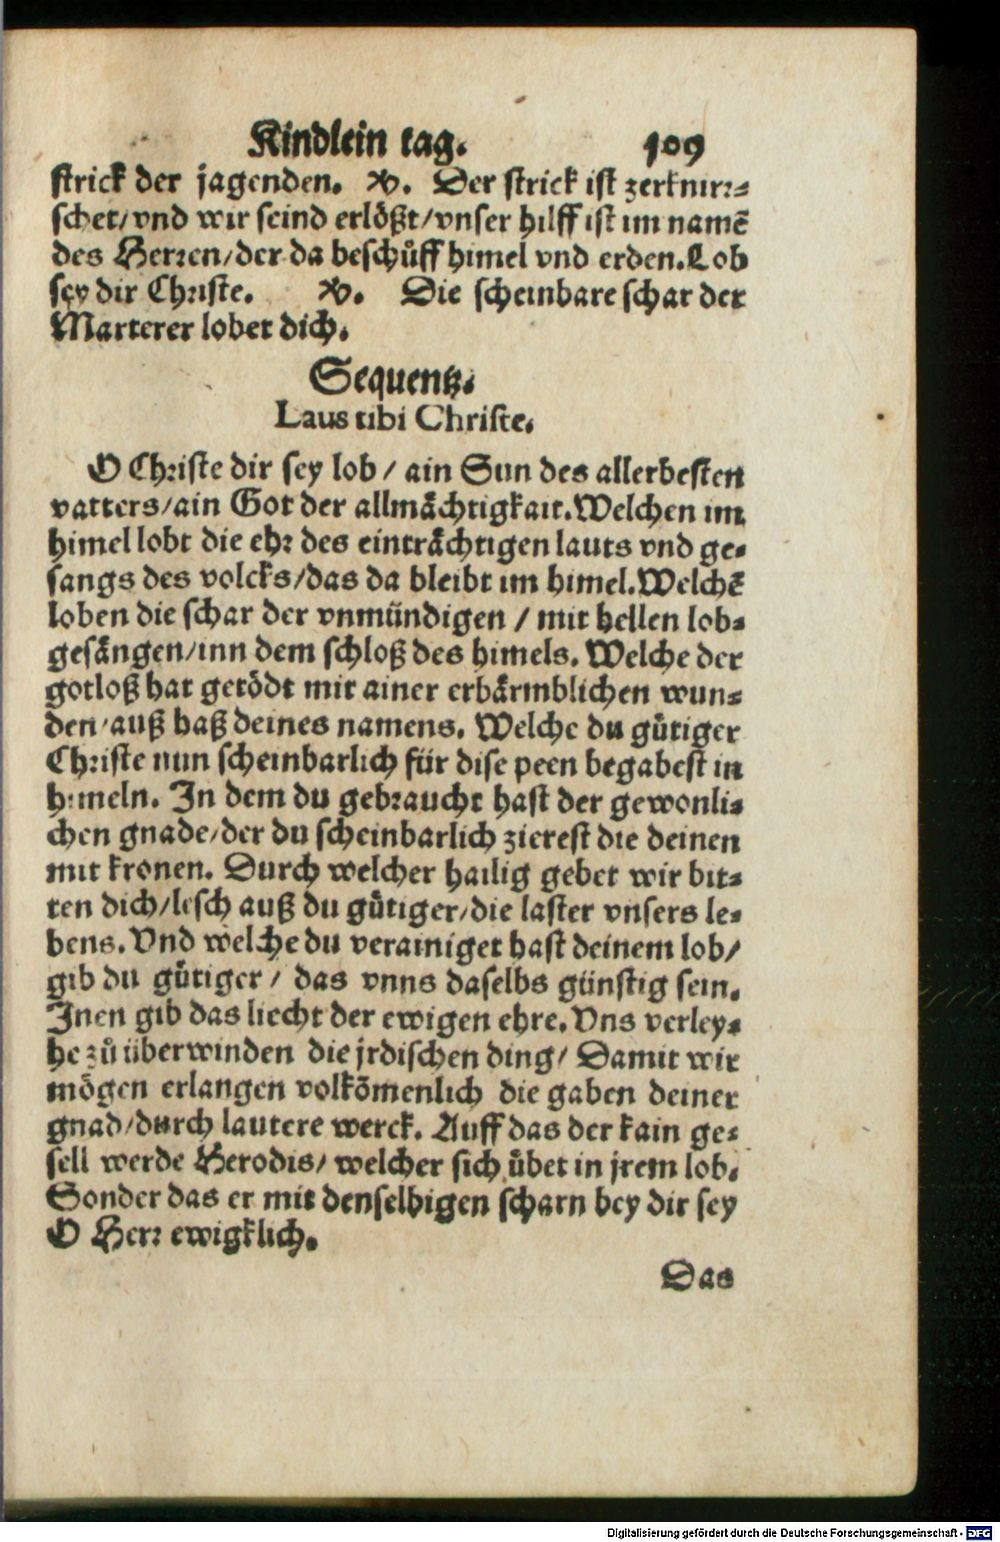 Kindlein tag. 109
strick der jagenden. ℣. Der strick ist zerknir-
schet/vnd wir seind erlößt/vnser hilff ist im namē
des Herren/der da beschůff himel vnd erden.Lob
sey dir Christe. ℣. Die scheinbare schar der
Marterer lobet dich.
Sequentz.
Laus tibi Christe.
O Christe dir sey lob / ain Sun des allerbesten
vatters/ain Got der allmächtigkait.Welchen im
himel lobt die ehr des einträchtigen lauts vnd ge-
sangs des volcks/das da bleibt im himel.Welchē
loben die schar der vnmündigen / mit hellen lob-
gesängen/inn dem schloß des himels. Welche der
gotloß hat getödt mit ainer erbärmblichen wun-
den/auß haß deines namens. Welche du gůtiger
Christe nun scheinbarlich für dise peen begabest in
himeln. In dem du gebraucht hast der gewonli-
chen gnade/der du scheinbarlich zierest die deinen
mit kronen. Durch welcher hailig gebet wir bit-
ten dich/lesch auß du gůtiger/die laster vnsers le-
bens.Vnd welche du verainiget hast deinem lob/
gib du gůtiger / das vnns daselbs günstig sein.
Inen gib das liecht der ewigen ehre.Vns verley-
he zů überwinden die jrdischen ding/ Damit wir
mögen erlangen volkōmenlich die gaben deiner
gnad/durch lautere werck. Auff das der kain ge-
sell werde Herodis/ welcher sich ůbet in jrem lob.
Sonder das er mit denselbigen scharn bey dir sey
O Herr ewigklich.
Das
Digitalisierung gefördert durch die Deutsche Forschungsgemeinschaft - DFG